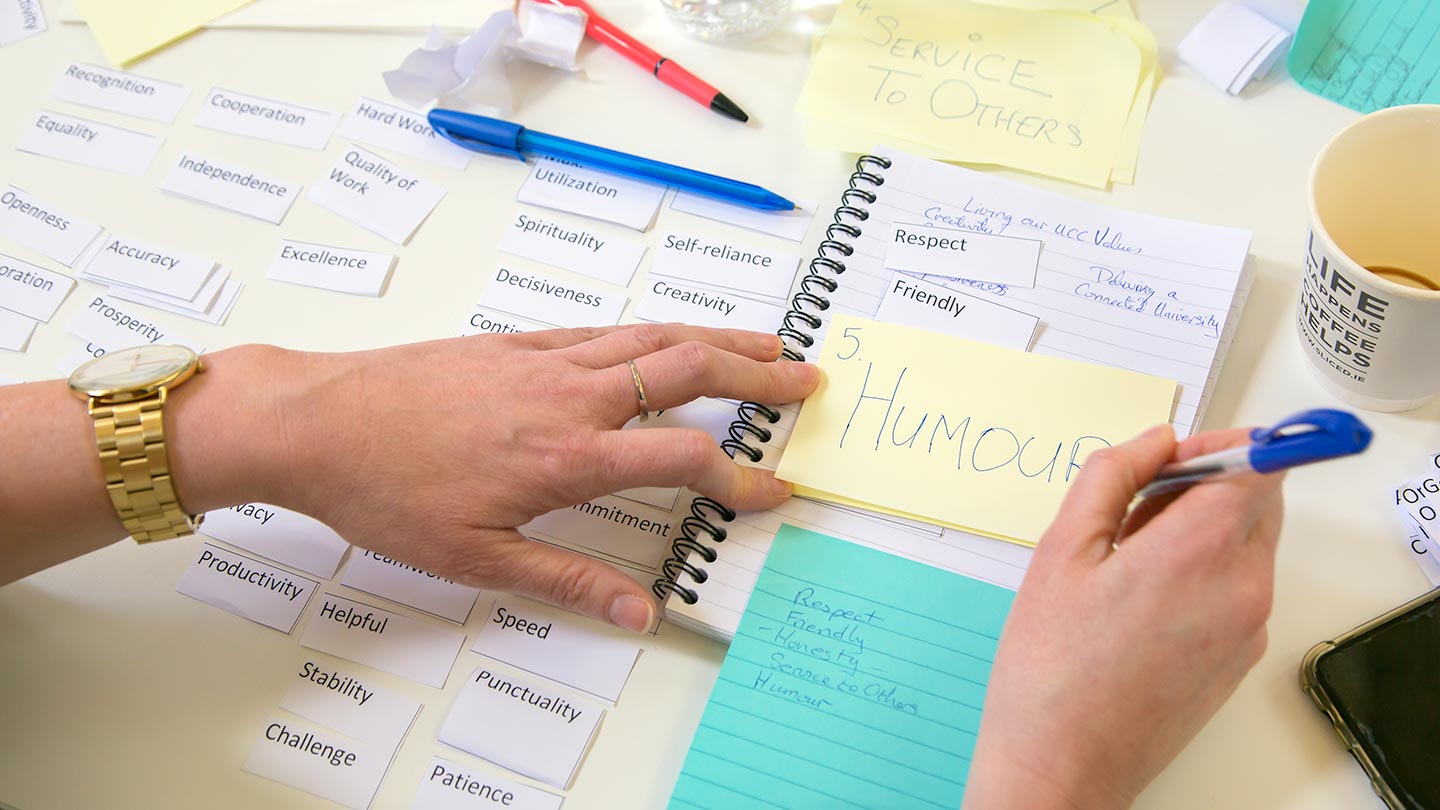 Recognition
Cooperation
Hard Work
Equality
Independence
Quality of
Work
Openness
Accuracy
Excellence
Prosperity
Utilization
Spirituality
Self-reliance
Decisiveness
Creativity
4
SERVICE
TO OTHERS
Living our UCC Values
Creativity
Respect
Delivering a
Connected University
Friendly
5.
HUMOUR
LIFE
HAPPENS
COFFEE
HELPS
WWW.SLICED.IE
Productivity
Teamwork
Helpful
Speed
Stability
Punctuality
Challenge
Patience
Respect
Friendly
- Honesty -
Service to Others
Humour